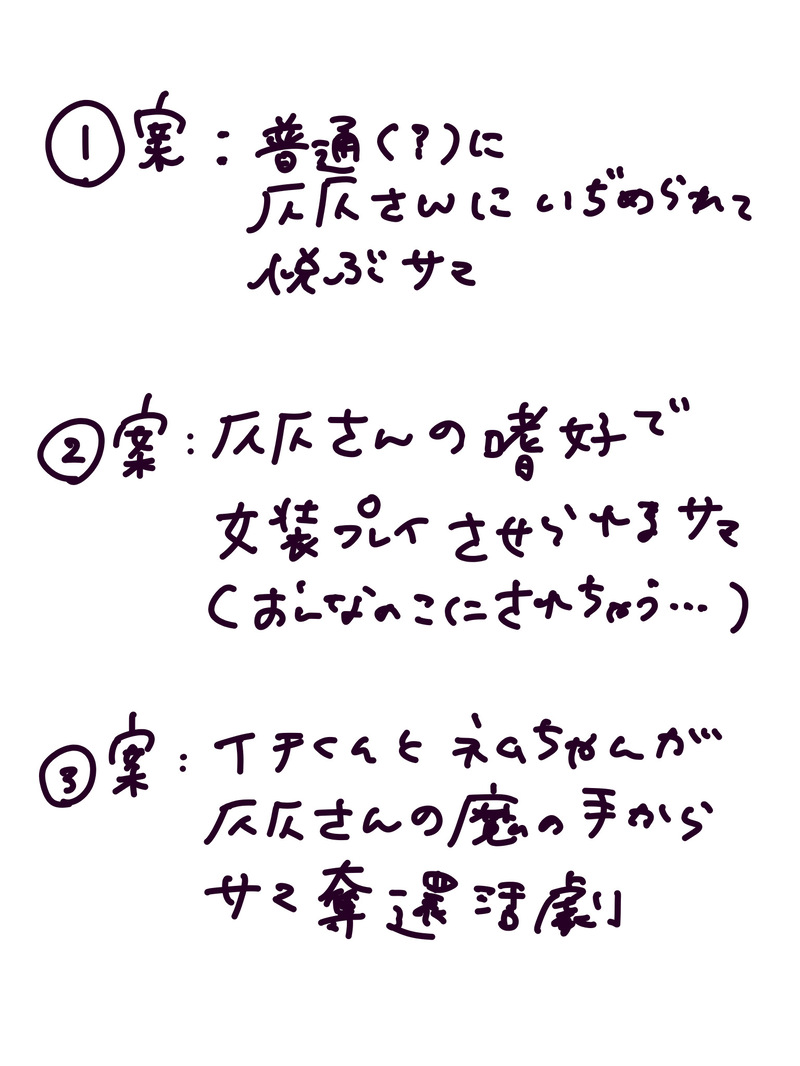 ①案：普通(?)に
仄仄さんにいぢめられて
悦ぶサマ
②案：仄仄さんの嗜好で
女装プレイさせられるサマ
(おんなのこにされちゃう…)
③案：イチくんとネムちゃんが
仄仄さんの魔の手から
サマ奪還活劇